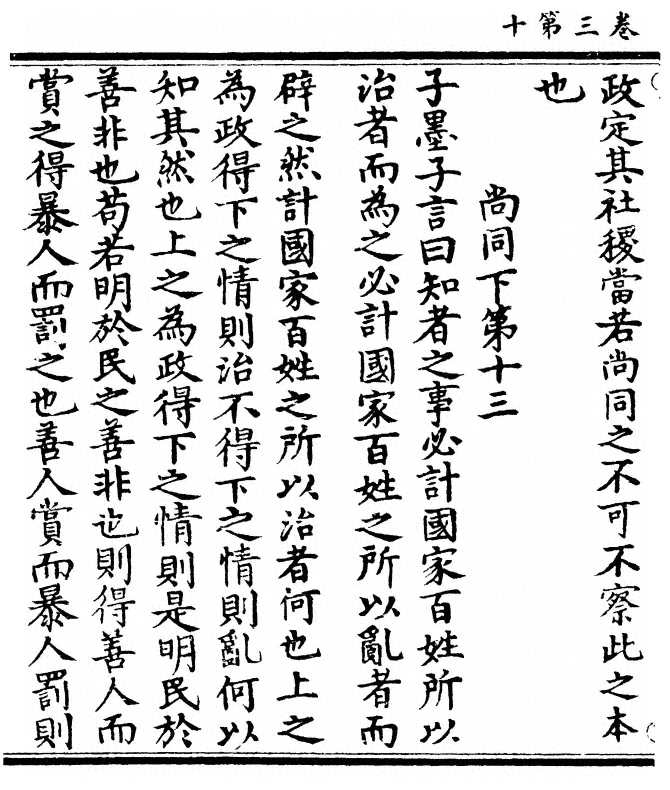 卷三第十
政定其社稷當若尚同之不可不察此之本
也
尚同下第十三
子墨子言曰知者之事必計國家百姓所以
治者而為之必計國家百姓之所以亂者而
辟之然計國家百姓之所以治者何也上之
為政得下之情則治不得下之情則亂何以
知其然也上之為政得下之情則是明民於
善非也苟若明於民之善非也則得善人而
賞之得暴人而罰之也善人賞而暴人罰則